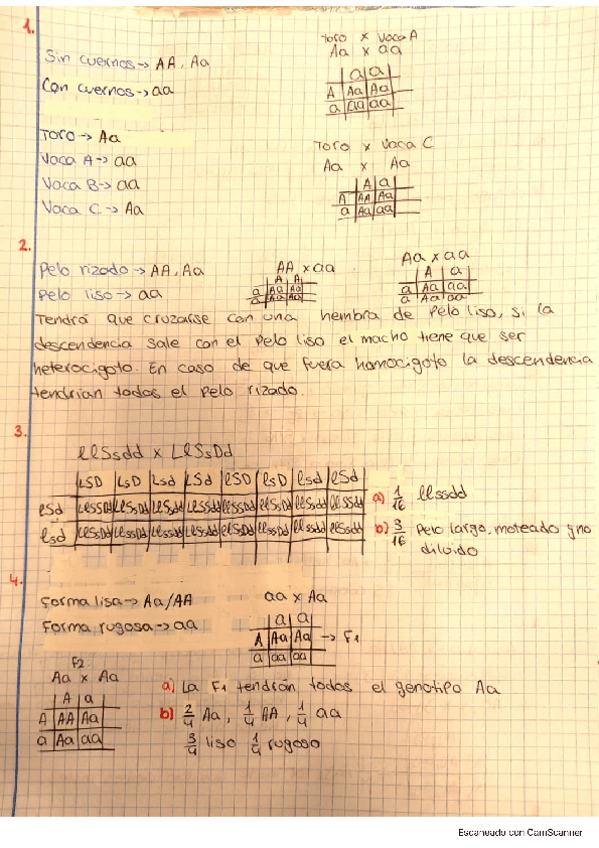 1.
Sin cuernos → AA, Aa
Con cuernos → aa
Toro → Aa
Vaca A → aa
Vaca B → aa
Vaca C → Aa
Toro x Vaca A
Aa x aa
a a
A Aa Aa
a aa aa
Toro x Vaca C
Aa x Aa
A a
A AA Aa
a Aa aa
2.
Pelo rizado → AA, Aa
Pelo liso → aa
AA x aa
A A
a Aa Aa
a Aa Aa
Aa x aa
A a
a Aa aa
a Aa aa
Tendrá que cruzarse con una hembra de pelo liso, si la
descendencia sale con el pelo liso el macho tiene que ser
heterocigoto. En caso de que fuera homocigoto la descendencia
tendrian todos el pelo rizado.
3.
llSsdd x LlSsDd
LSD LsD Lsd LSd lSD lsD lsd lSd
lSd
lsd
a) 1/16 llssdd
b) 3/16 Pelo largo, moteado y no
diluido
4.
Forma lisa → Aa/AA
Forma rugosa → aa
aa x Aa
a a
A Aa Aa → F1
a aa aa
F2
Aa x Aa
A a
A AA Aa
a Aa aa
a) La F1 tendrán todos el genotipo Aa
b) 2/4 Aa, 1/4 AA, 1/4 aa
3/4 liso 1/4 rugoso
Escaneado con CamScanner